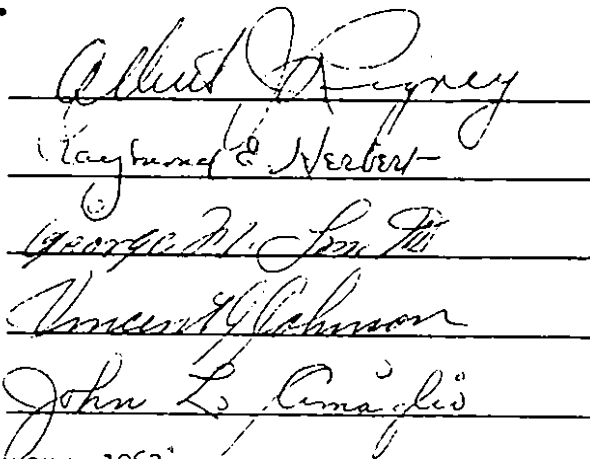 Albert J. Rigney
Raymond E. Herbert
George M.
Vincent J. Johnson
John L. Amaglio
1963